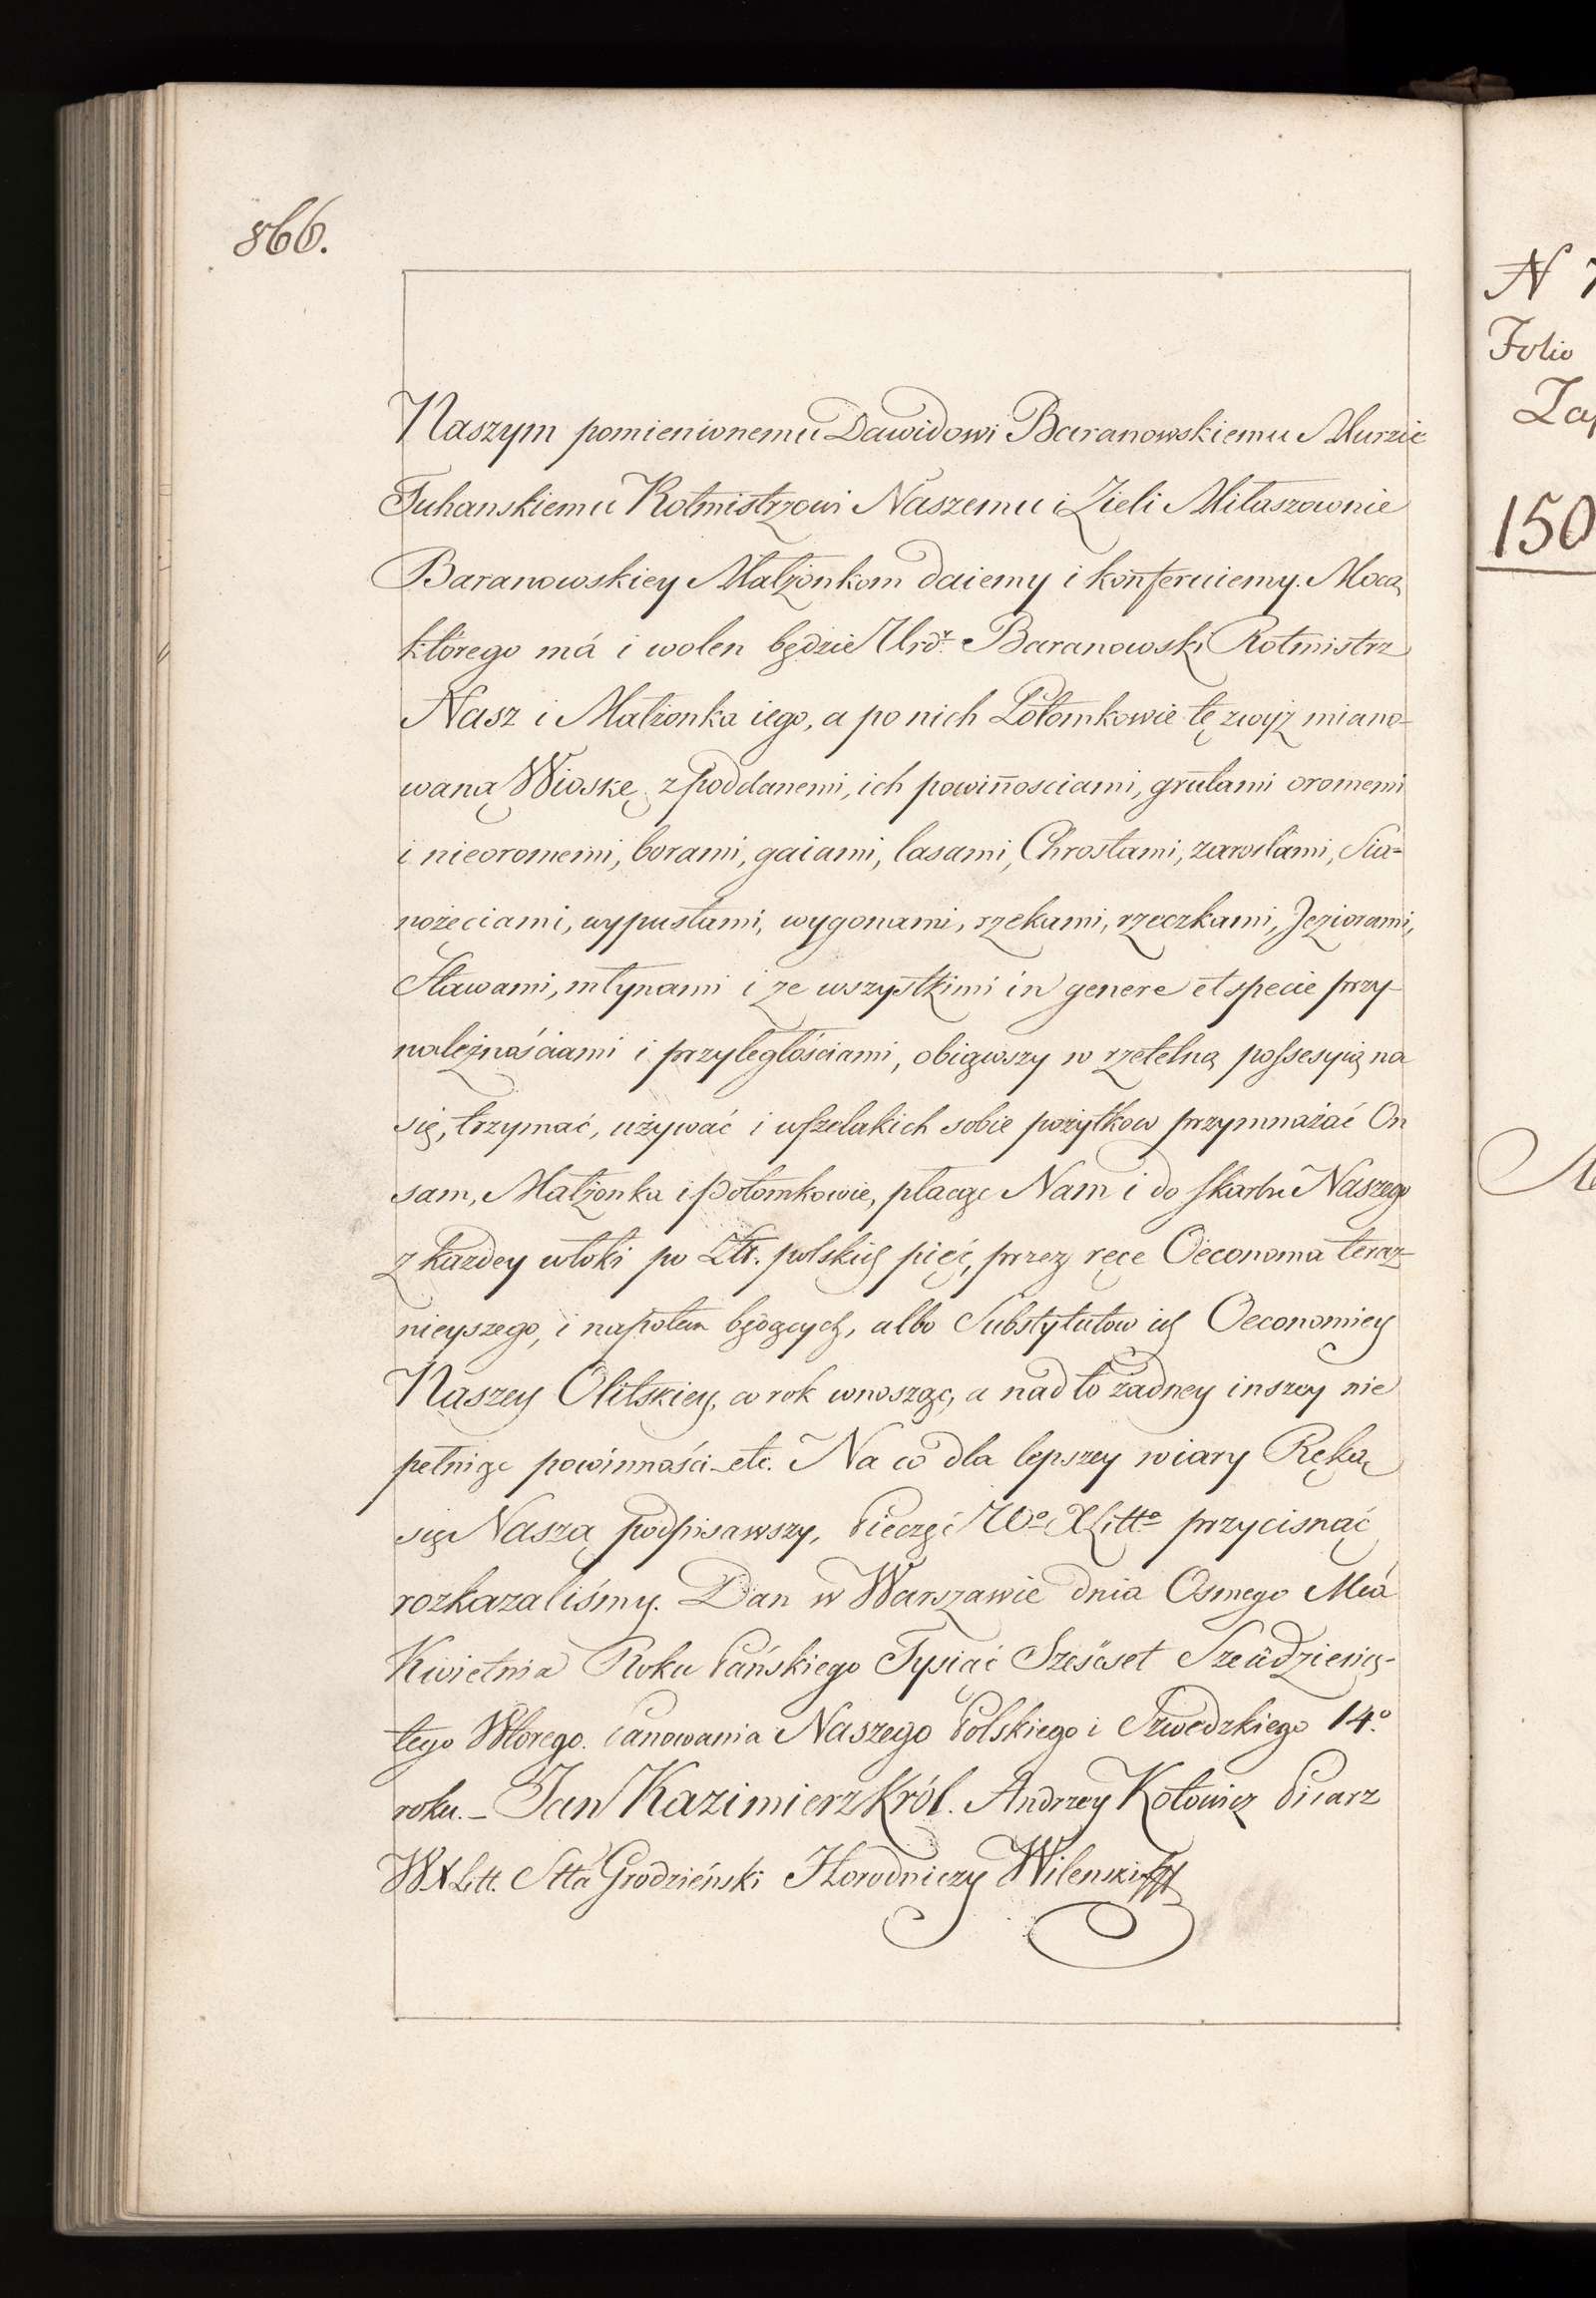 866.
Naszym pomienionemu Dawidowi Baranowskiemu Murzie
Tuhanskiemu Rotmistrzowi Naszemu i Zieli Milaszownie
Baranowskiey Małżonkom daiemy i konferuiemy. Mocą
którego má i wolen będzie Urdz. Baranowski Rotmistrz
Nasz i Małżonka iego, a po nich Potomkowie tę zwyż miano-
waną Wioskę z poddanemi, ich powiñosciami, grütami oromemi
i nieoromemi, borami, gaiami, lasami, Chrostami, zaroslami, Sia=
nożęciami, wypustami, wygonami, rzekami, rzeczkami, Jeziorami,
Stawami, młynami i ze wszystkimi in genere et specie przy-
należnościami i przyległościami, obiąwszy w rzetelną possesyią na
się, trzymać, używać i wszelakich sobie pożytkow przymnażać On
sam, Małżonka i Potomkowie, płacąc Nam i do skarbu Naszego
z każdey włoki po Złt. polskich pięć, przez ręce Oeconoma teraz-
nieyszego, i napotem będących, albo Substytutow ich Oeconomiey
Naszey Olitskiey, co rok wnosząc, a nad to żadney inszey nie
pełniąc powinności etc. Na co dla lepszey wiary Ręką
się Naszą podpisawszy, Pieczęć Wo XLitto przycisnąć
rozkazaliśmy. Dan w Warszawie dnia Osmego Mca
Kwietnia Roku Pańskiego Tysiąc Sześcset Sześdziesią-
tego Wtorego. Panowania Naszego Polskiego i Szwedzkiego 14.o
roku. _ Jan Kazimierz Król. Andrzey Kotowicz Pisarz
WXLitt. Stta Grodzieński Horodniczy Wilenski
N 7
Folio
Zap
150